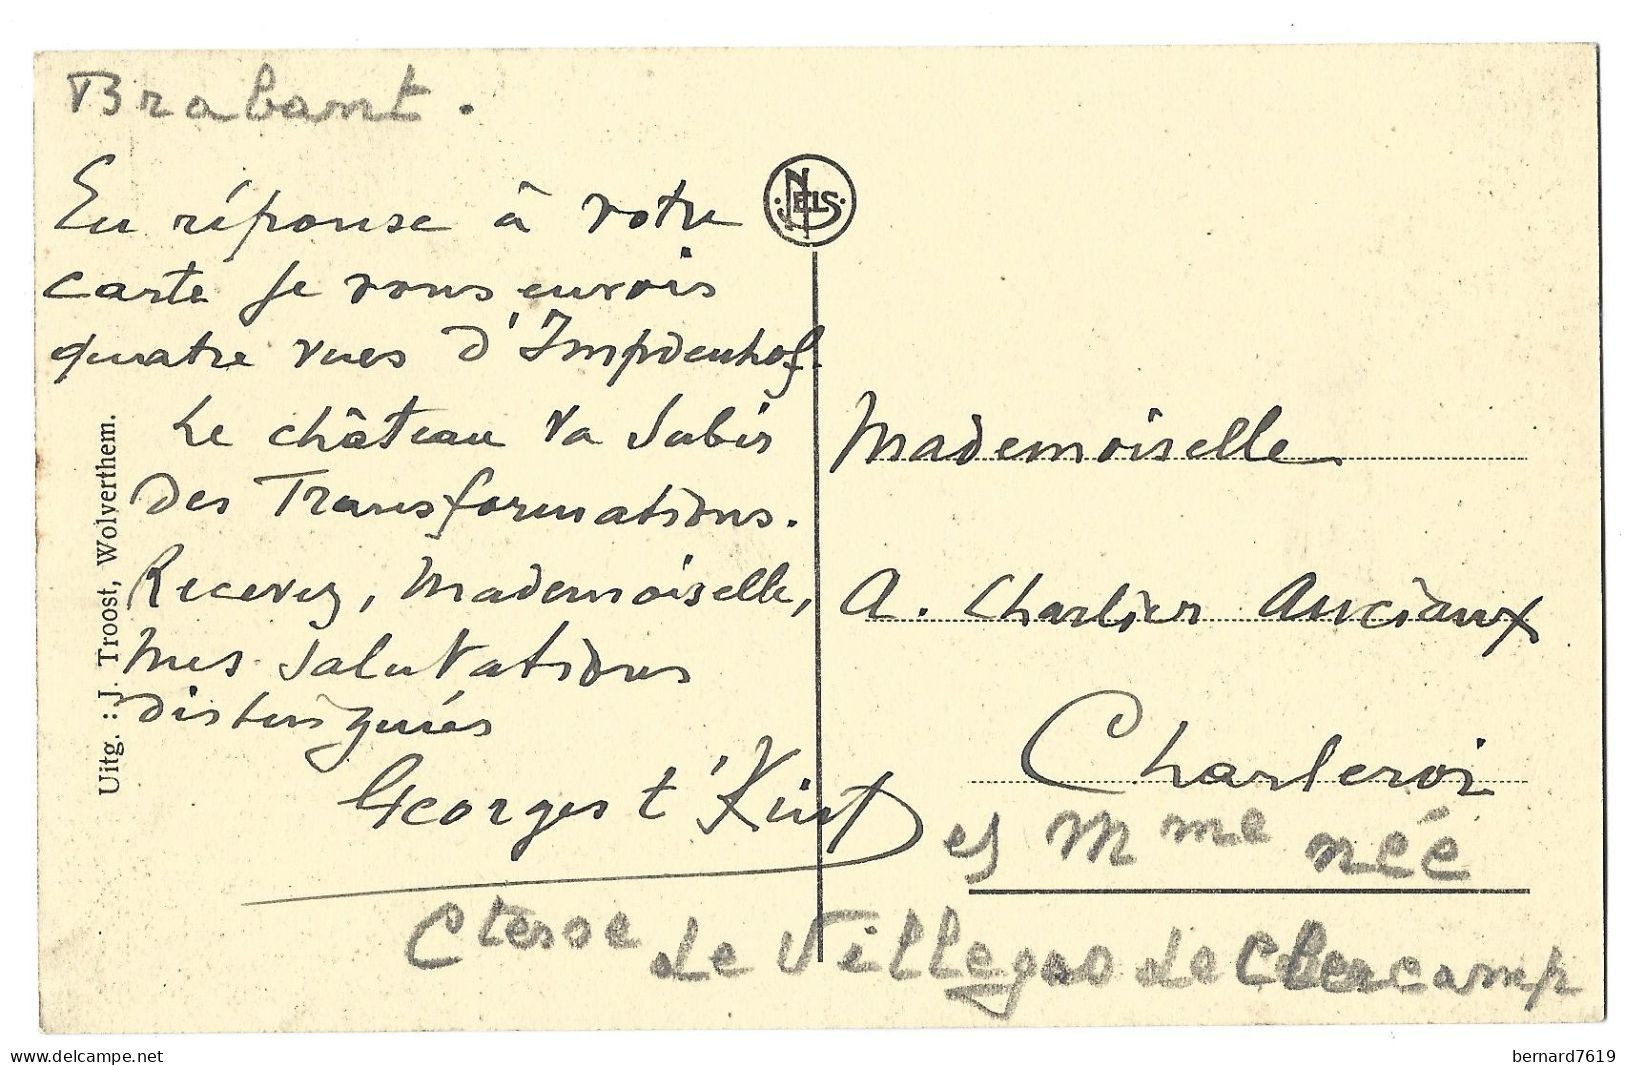 Brabant.
En réponse à votre
carte je vous envois
quatre vues d'Impdenhof.
Le château va subir
des transformations.
Recevez, Mademoiselle,
mes salutations
distinguées
Georges t'Kint
et Mme née
Ctesse de Villegas de Clercamp
NELS
Mademoiselle
A. Charlier Anciaux
Charleroi
Uitg. : J. Troost, Wolverthem.
delcampe.net
bernard7619